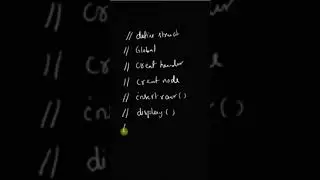 // define struct
// Global
// Creat header
// Creat node
// insert rear ()
// display ()
/